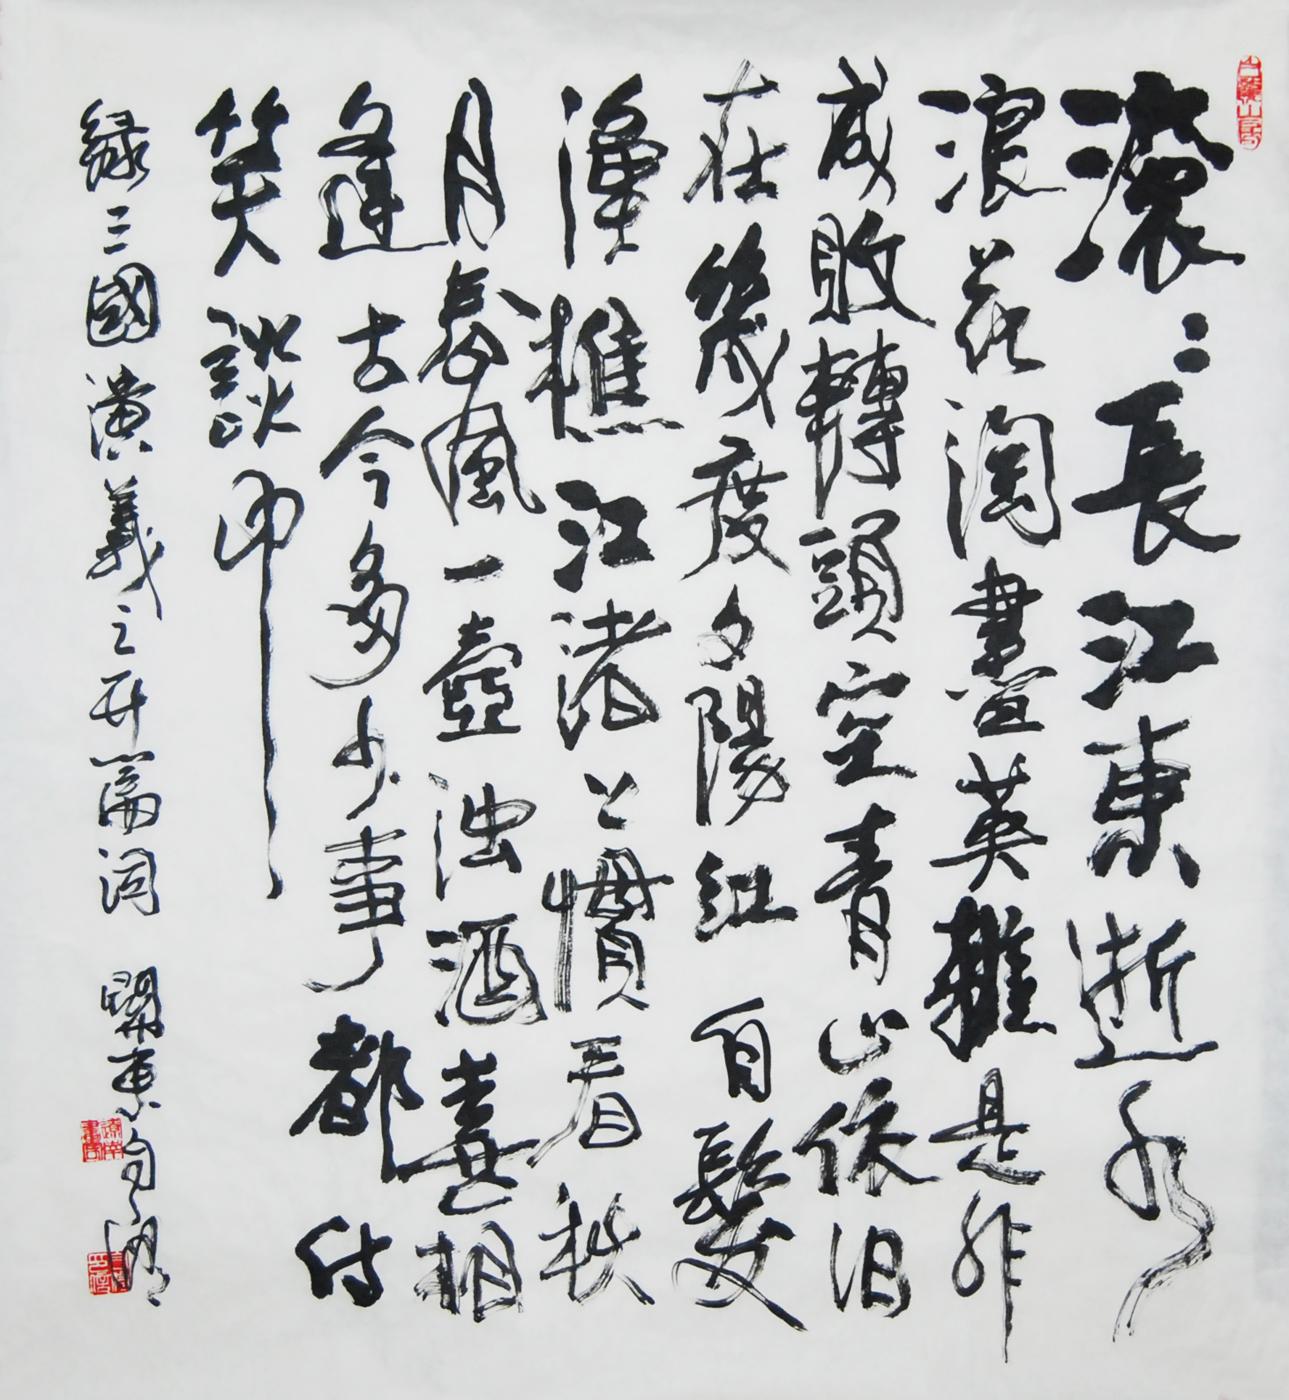 滚〻長江東逝水
浪花淘盡英雄是非
成敗轉頭空青山依旧
在幾度夕陽紅 白髮
漁樵江渚上慣看秋
月春風一壺浊酒喜相
逢古今多少事都付
笑談中
録三國演義之开篇词 關東